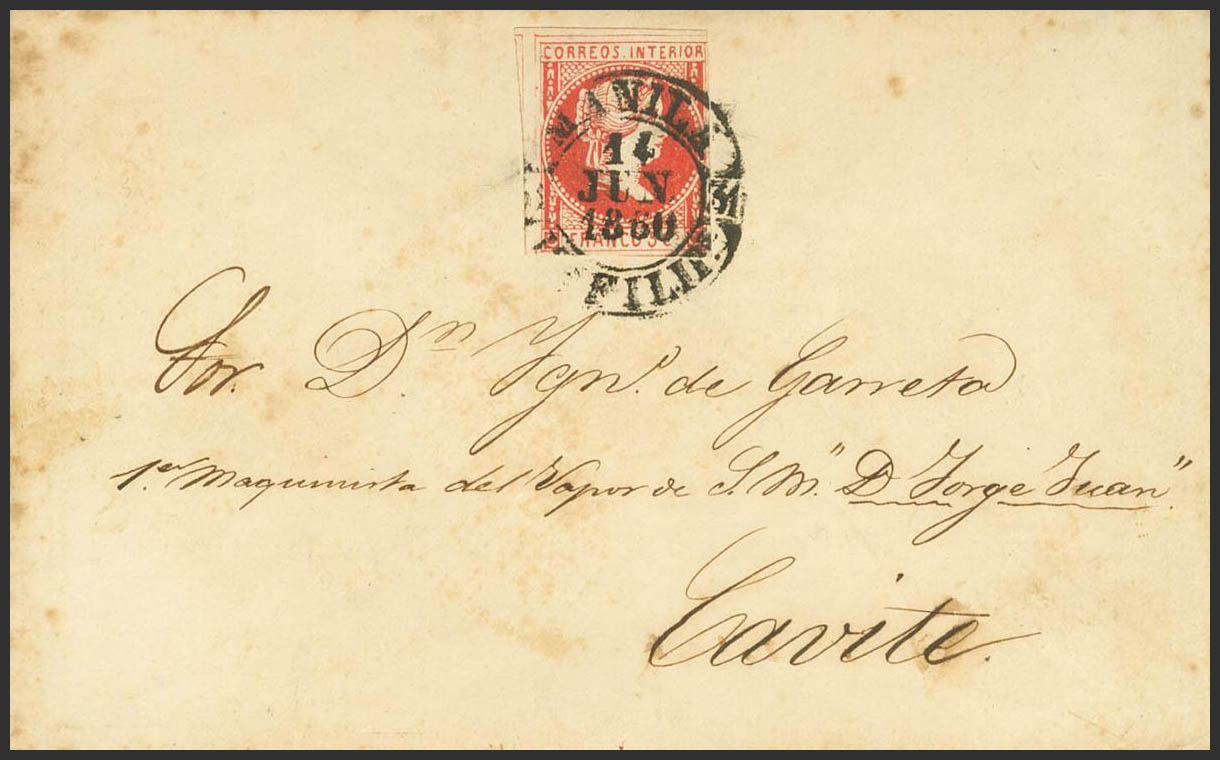 CORREOS.INTERIOR
MANILA
14
JUN
1860
FRANCO
FILIP
Sor. Dn. Ygno. de Garreta
1er. Maquinista del Vapor de S. M. "D. Jorge Juan".
Cavite.